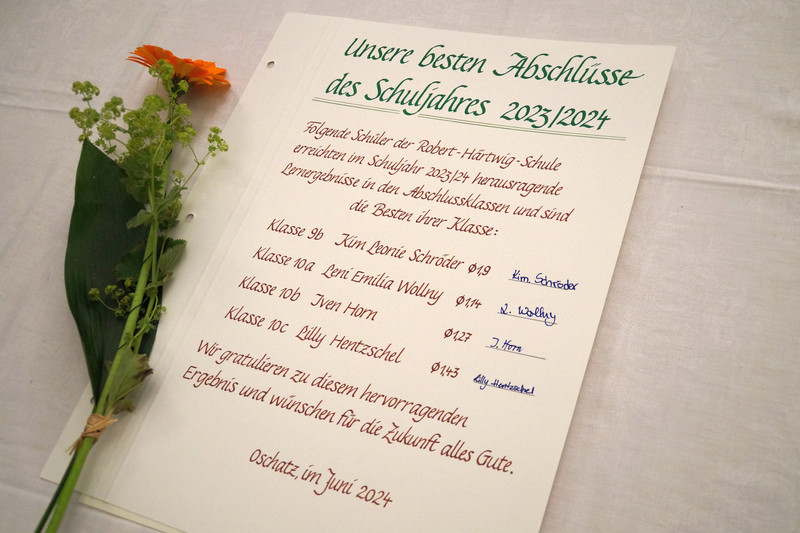 Unsere besten Abschlüsse
des Schuljahres 2023/2024
Folgende Schüler der Robert-Härtwig-Schule
erreichten im Schuljahr 2023/24 herausragende
Lernergebnisse in den Abschlussklassen und sind
die Besten ihrer Klasse:
Klasse 9b Kim Leonie Schröder Ø1,9 Kim Schröder
Klasse 10a Leni Emilia Wollny Ø1,14 L. Wollny
Klasse 10b Iven Horn Ø1,27 I. Horn
Klasse 10c Lilly Hentzschel Ø1,43 Lilly Hentzschel
Wir gratulieren zu diesem hervorragenden
Ergebnis und wünschen für die Zukunft alles Gute.
Oschatz, im Juni 2024